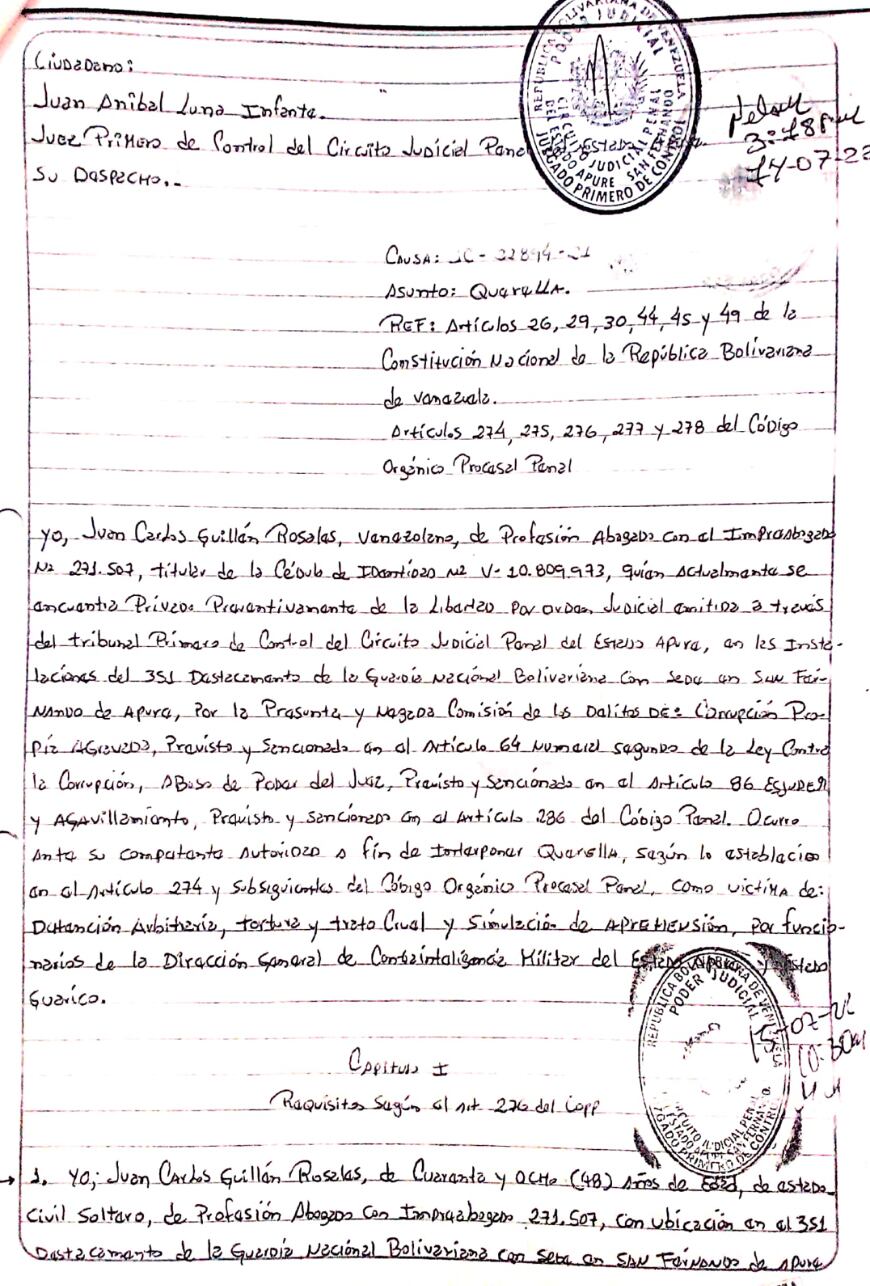 Ciudadano:
Juan Anibal Luna Infante.
Juez Primero de Control del Circuito Judicial Penal Estado
Su Despacho.-
REPUBLICA BOLIVARIANA DE VENEZUELA
PODER JUDICIAL
CIRCUITO JUDICIAL PENAL
DEL ESTADO APURE SAN FERNANDO
JUZGADO PRIMERO DE CONTROL
3:18 pm
14-07-22
Causa: 1C-22894-21
Asunto: Querella.
REF: Artículos 26, 29, 30, 44, 45 y 49 de la
Constitución Nacional de la República Bolivariana
de Venezuela.
Artículos 274, 275, 276, 277 y 278 del Código
Orgánico Procesal Penal
Yo, Juan Carlos Guillén Rosales, Venezolano, de Profesión Abogado con el Impreabogado
Nº 271.507, titular de la Cédula de Identidad Nº V-10.809.973, quien actualmente se
encuentra Privado Preventivamente de la Libertad por orden Judicial emitida a través
del tribunal Primero de Control del Circuito Judicial Penal del Estado Apure, en las Insta-
laciones del 351 Destacamento de la Guardia Nacional Bolivariana con sede en San Fer-
nando de Apure, Por la Presunta y Negada Comisión de los Delitos DE: Corrupción Pro-
pia Agravada, Previsto y Sancionado en el Artículo 64 Numeral segundo de la Ley Contra
la Corrupción, Abuso de Poder del Juez, Previsto y sancionado en el Artículo 86 EJUSDEM
y Agavillamiento, Previsto y sancionado en el Artículo 286 del Código Penal. Ocurro
Ante su competente Autoridad a fin de Interponer Querella, según lo establecido
en el Artículo 274 y Subsiguientes del Código Orgánico Procesal Penal, como victima de:
Detención Arbitraria, tortura y trato Cruel y Simulación de Aprehensión, Por funcio-
narios de la Dirección General de Contrainteligencia Militar del Estado y Estado
Guarico.
REPUBLICA BOLIVARIANA DE VENEZUELA
PODER JUDICIAL
CIRCUITO JUDICIAL PENAL
ESTADO APURE SAN FERNANDO
JUZGADO PRIMERO DE CONTROL
15-07-22
10:30am
Capitulo I
Requisitos Según el Art. 276 del Copp
1. Yo; Juan Carlos Guillén Rosales, de Cuarenta y Ocho (48) Años de Edad, de estado
Civil Soltero, de Profesión Abogado con Impreabogado 271.507, con ubicación en el 351
Destacamento de la Guardia Nacional Bolivariana con sede en San Fernando de Apure